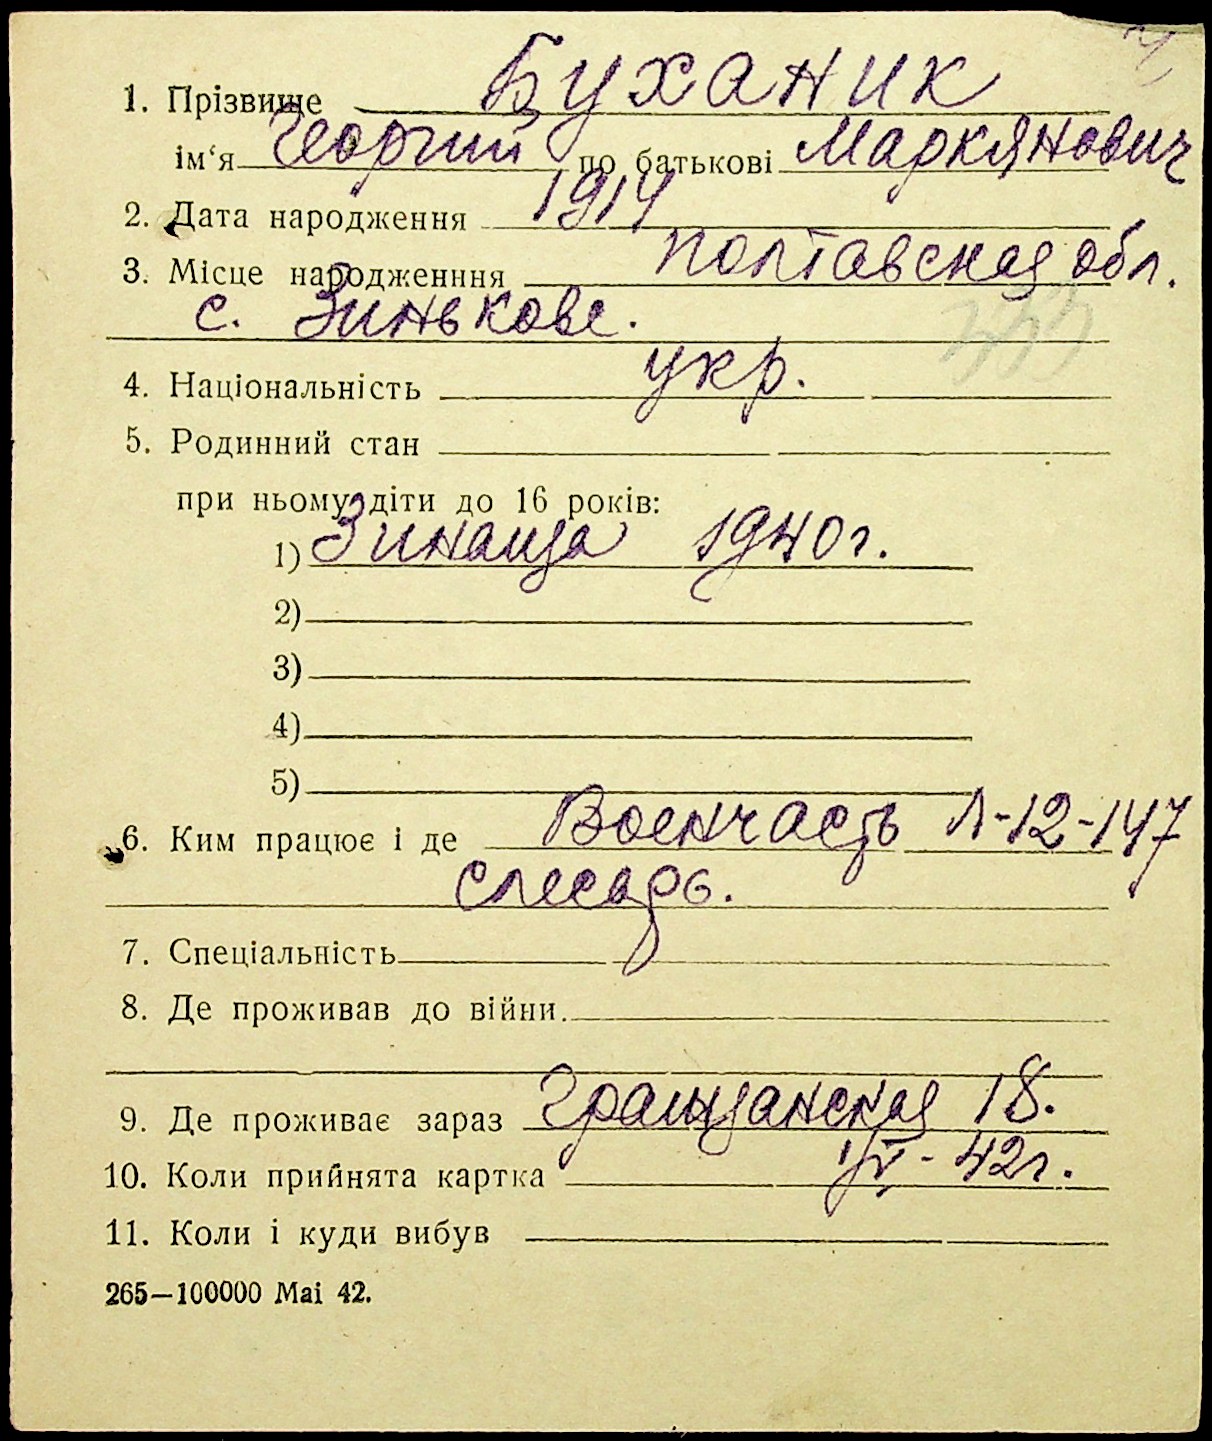 1. Прізвище Буханик
ім‘я Георгий по батькові Маркянович
2. Дата народження 1914
3. Місце народженння Полтавская обл.
с. Зинькове.
4. Національність укр.
5. Родинний стан
при ньому діти до 16 років:
1) Зинаида 1940г.
2)
3)
4)
5)
6. Ким працює і де Военчасть Л-12-147
слесарь.
7. Спеціальність
8. Де проживав до війни.
9. Де проживає зараз Гражданская 18.
10. Коли прийнята картка - 42г.
11. Коли і куди вибув
265—100000 Mai 42.